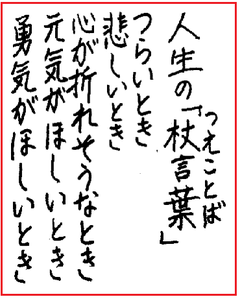 人生の「杖言葉」
つえことば
つらいとき
悲しいとき
心が折れそうなとき
元気がほしいとき
勇気がほしいとき